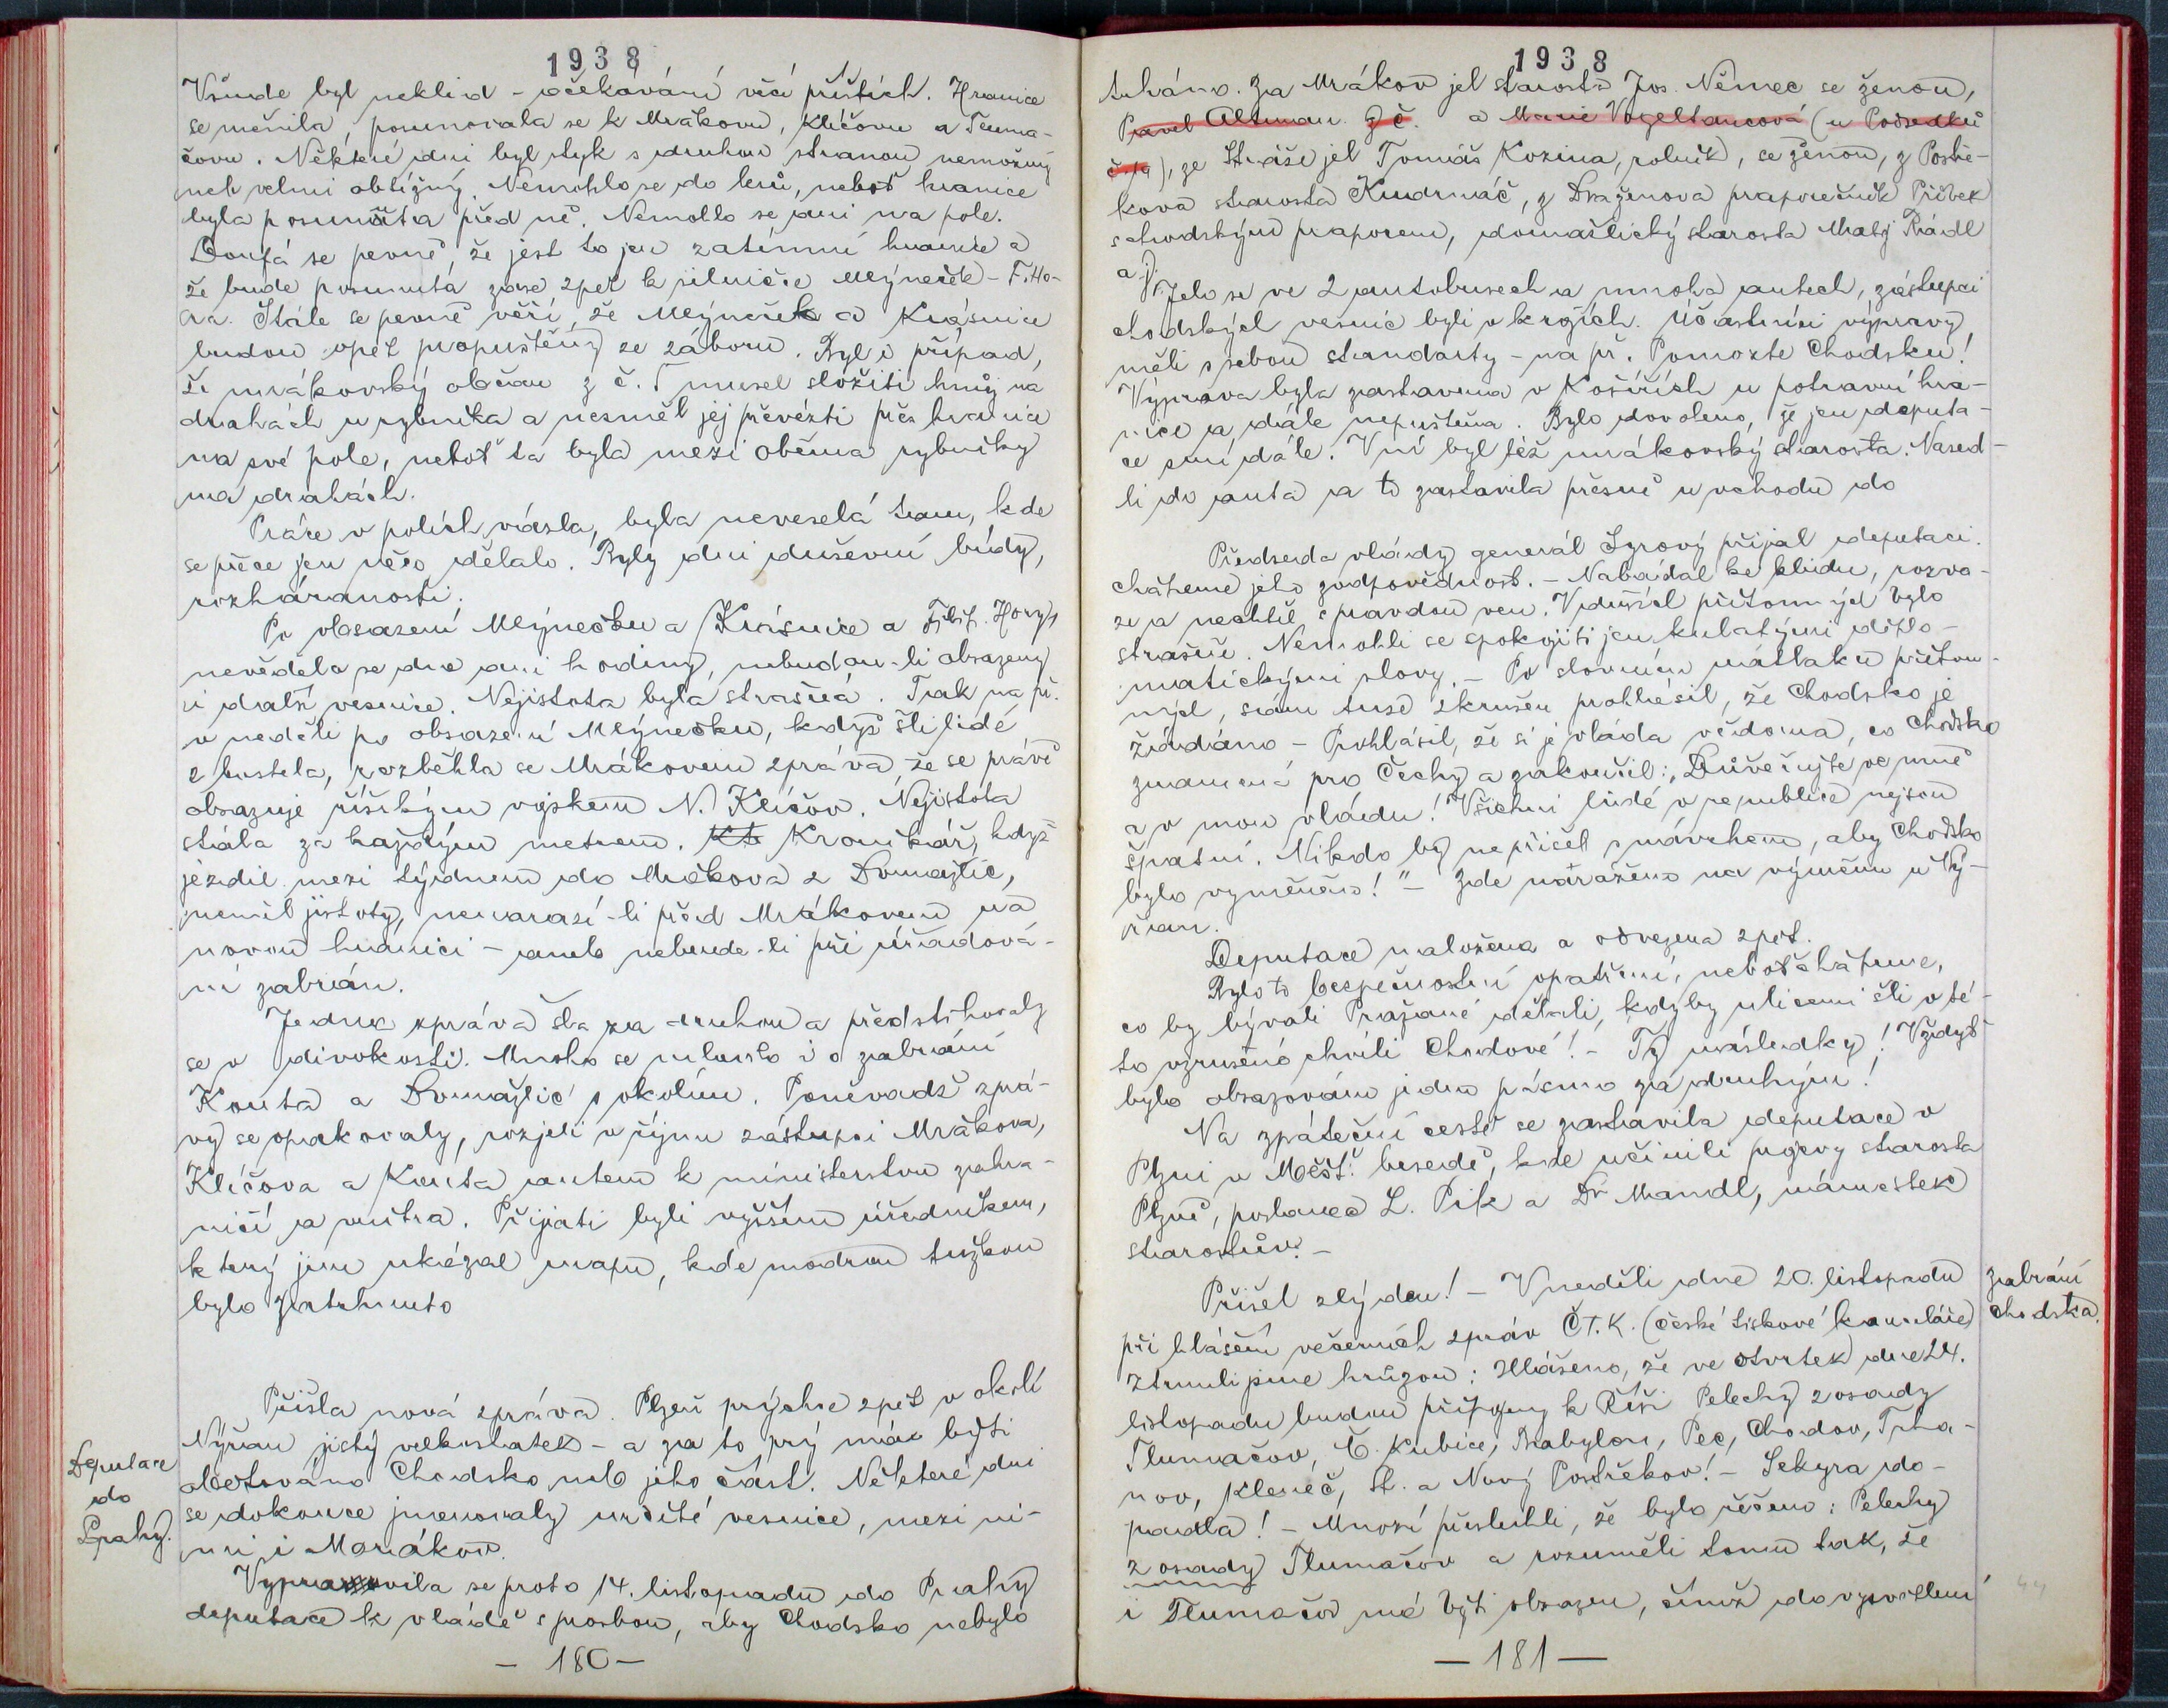 1938
Všude byl neklid - očekávání věcí příštích. Hranice
se měnila, posunovala se k Mrákovu, Klíčovu a Tluma-
čovu. Některé dni byl styk s druhou stranou nemožný
neb velmi obtížný. Nemohlo se do lesů, neboť hranice
byla posunuta před ně. Nemohlo se ani na pole.
Doufá se pevně, že jest to jen zatímní hranice a
že bude posunuta zase zpět k silničce Mlýneček - F. Ho-
ra. Stále se pevně věří, že Mlýneček a Krásnice
budou opět propuštěny ze záboru. Byl i případ,
že mrákovský občan z č. musel složiti hnůj na
drahách u rybníka a nesměl jej převézti přes hranice
na své pole, neboť ta byla mezi oběma rybníky
na drahách.
Práce v polích vázla, byla neveselá tam, kde
se přece jen něco dělalo. Byly dni duševní bídy,
rozháranosti.
Po obsazení Mlýnečku a Krásnice a Filip. Hory,
nevěděla se dne ani hodiny, nebudou-li obsazeny
i další vesnice. Nejistota byla strašná. Tak na př.
v neděli po obsazení Mlýnečku, když šli lidé
z kostela, rozběhla se Mrákovem zpráva, že se právě
obsazuje říšským vojskem N. Klíčov. Nejistota
stála za každým metrem. Kronikář, když
jezdil mezi týdnem do Mrákova z Domažlic,
neměl jistoty, nenarazí-li před Mrákovem na
novou hranici - aneb nebude-li při úřadová-
ní zabrán.
Jedna zpráva šla za druhou a předstihovaly
se v divokosti. Mnoho se mluvilo i o zabrání
Kouta a Domažlic s okolím. Poněvadž zprá-
vy se opakovaly, rozjeli v říjnu zástupci Mrákova,
Klíčova a Kouta autem k ministerstvu zahra-
ničí a vnitra. Přijati byli vyšším úředníkem,
který jim ukázal mapu, kde modrou tužkou
bylo zatrhnuto
Přišla nová zpráva. Plzeň prý chce zpět v okolí
Nýřan jistý velkostatek - a za to prý má býti
obětováno Chodsko neb jeho část. Některé dni
se dokonce jmenovaly určité vesnice, mezi ni-
mi i Mrákov.
Deputace
do
Prahy.
Vypravila se proto 14. listopadu do Prahy
deputace k vládě s prosbou, aby Chodsko nebylo
- 180 -
1938
trháno. Za Mrákov jel starosta Jos. Němec se ženou,
Pavel Altman. 9 č. a Marie Vogeltancová (u Podsedků
č. 19), ze Stráže jel Tomáš Kozina, rolník, se ženou, z Postře-
kova starosta Kudrnáč, z Draženova praporečník Příbek
s chodským praporem, domažlický starosta Matěj Rádl
a j.
Jelo se ve 2 autobusech a mnoha autech, zástupci
chodských vesnic byli v krojích. Účastníci výpravy
měli s sebou standarty - na př. Pomozte Chodsku!
Výprava byla zastavena v Košířích u potravní hra-
nice a dále nepuštěna. Bylo dovoleno, že jen deputa-
ce smí dále. V ní byl též mrákovský starosta. Nased-
li do auta a to zastavila přesně u vchodu do
Předseda vlády generál Syrový přijal deputaci.
Chápeme jeho zodpovědnost. - Nabádal ke klidu, rozva-
ze a nechtěl s pravdou ven. V duších přítomných bylo
strašně. Nemohli se spokojiti jen kulatými diplo-
matickými slovy. - Po slovním nátlaku přítom-
ných, sám tuze zkrušen prohlásil, že Chodsko je
žádáno - Prohlásil, že si je vláda vědoma, co Chodsko
znamená pro Čechy a zakončil: „Důvěřujte ve mně
a v mou vládu! Všichni lidé v republice nejsou
špatní. Nikdo by nepřišel s návrhem, aby Chodsko
bylo vyměněno!" - Zde naráženo na výměnu u Ný-
řan.
Deputace naložena a odvezena zpět.
Bylo to bezpečnostní opatření, neboť chápeme,
co by bývali Pražané dělali, kdyby ulicemi šli v té-
to vzrušené chvíli Chodové! - Ty následky! Vždyť
bylo obsazováno jedno pásmo za druhým!
Na zpáteční cestě se zastavila deputace v
Plzni v Měšť. besedě, kde učinili projevy starosta
Plzně, poslanec L. Pik a Dr Mandl, náměstek
starostův. -
Přišel zlý den! - V neděli dne 20. listopadu
zabrání
Chodska.
při hlášení večerních zpráv Č.T.K. (české tiskové kanceláře)
ztrnuli jsme hrůzou: Hlášeno, že ve čtvrtek dne 24.
listopadu budou připojeny k Říši Pelechy z osady
Tlumačov, Č. Kubice, Babylon, Pec, Chodov, Trha-
nov, Kleneč, St. a Nový Postřekov! - Sekyra do-
padla! - Mnozí přeslechli, že bylo řečeno: Pelechy
z osady Tlumačov a rozuměli tomu tak, že
i Tlumačov má býti obsazen, čímž do vysvětlení
- 181 -